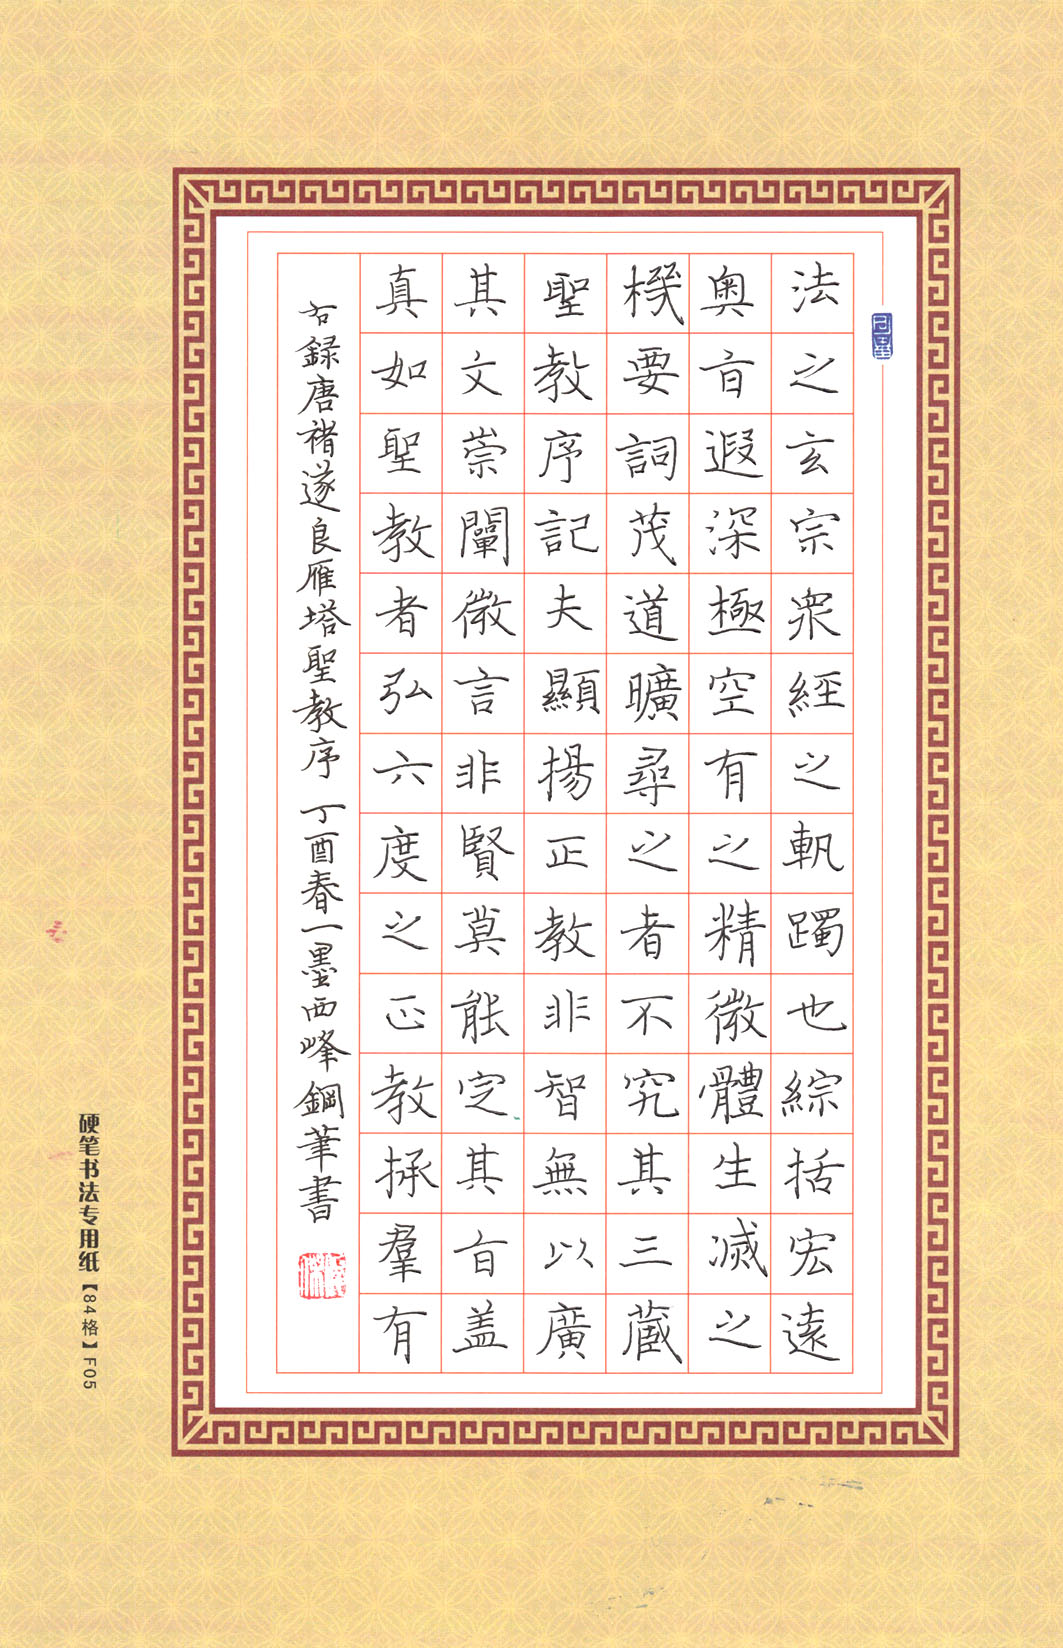 真如聖教者弘六度之正教拯羣有
其文崇闡微言非賢莫能定其旨盖
聖教序記夫顯揚正教非智無以廣
機要詞茂道曠尋之者不究其三蔵
奥旨遐深極空有之精微體生滅之
法之玄宗衆經之軌躅也綜括宏遠
右録唐褚遂良雁塔聖教序 丁酉春一墨西峰鋼筆書
硬笔书法专用纸【84格】F05